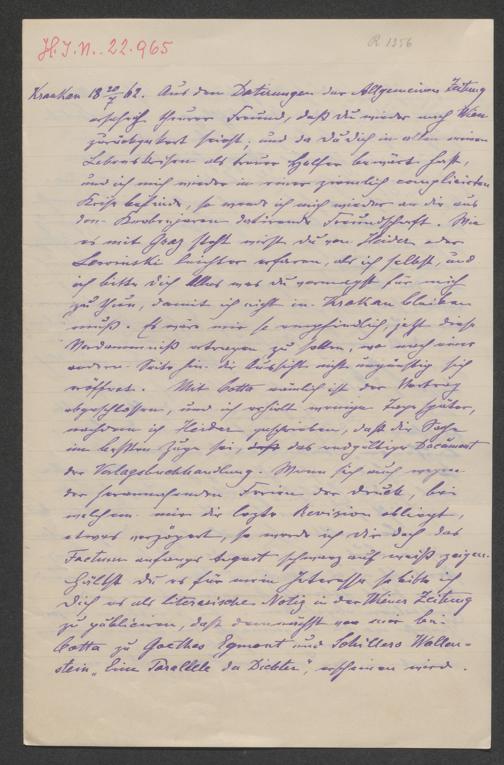 H.I.N.-22.965
R 1356
Krakau 18 20/7 62. Aus den Datirungen der Allgemeinen Zeitung
ersehe ich theurer Freund, daß Du wieder nach Wien
zurückgekehrt seiest; und da Du Dich in allen meinen
Lebenskrisen als treuer Helfer bewärt hast,
und ich mich wieder in einer ziemlich complicirten
Krise befinde, so wende ich mich wieder an die aus
den Knabenjaren datirende Freundschaft. Wie
es mit Graz steht wirst Du von Heider oder
Lewinski leichter erfaren, als ich selbst, und
ich bitte Dich Alles was Du vermagst für mich
zu thun, damit ich nicht in Krakau bleiben
muß. Es wäre mir so empfindlich, jetzt diese
Verdammniß ertragen zu sollen, wo nach einer
andern Seite hin die Aussicht nicht ungünstig sich
eröffnet. Mit Cotta nämlich ist der Vertrag
abgeschlossen, und ich erhielt wenige Tage später,
nachdem ich Heider geschrieben, daß die Sache
im besten Zuge sei, das endgültige Document
der Verlagsbuchhandlung. Wenn sich auch wegen
der herannahenden Ferien der Druck, bei
welchem mir die lezte Revision obliegt,
etwas verzögert, so werde ich Dir doch das
Factum anfangs August schwarz auf weiß zeigen.
Hältst Du es für mein Interesse so bitte ich
Dich es als literarische Notiz in der Wiener Zeitung
zu publiciren, daß demnächst von mir bei
Cotta zu Goethes Egmont und Schillers Wallen-
stein „Eine Parallele der Dichter", erscheinen wird.